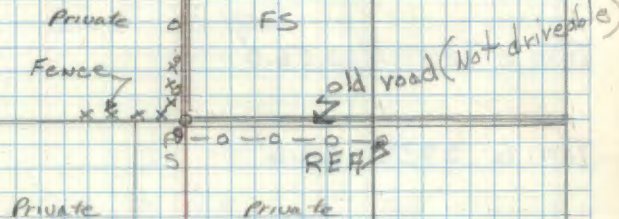 Private FS
Fence
old road (Not driveable)
P
S
REA
Private Private